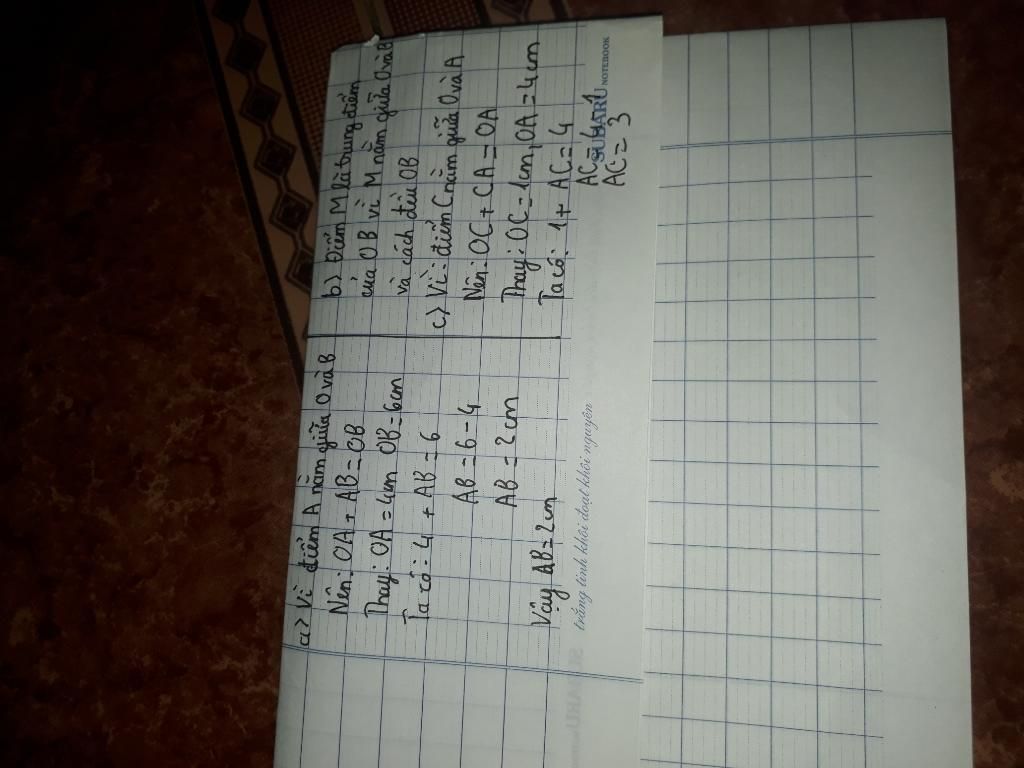 a> Vì điểm A nằm giữa O và B
Nên: OA + AB = OB
Thay: OA = 4cm OB = 6cm
Ta có: 4 + AB = 6
AB = 6 - 4
AB = 2cm
Vậy AB = 2cm
b) Điểm M là trung điểm
của OB vì M nằm giữa O và B
và cách đều OB
c> Vì: điểm C nằm giữa O và A
Nên: OC + CA = OA
Thay: OC = 1cm, OA = 4cm
Ta có: 1 + AC = 4
AC = 4 - 1
AC = 3
trắng tinh khôi đoạt khôi nguyên
SUBARU NOTEBOOK